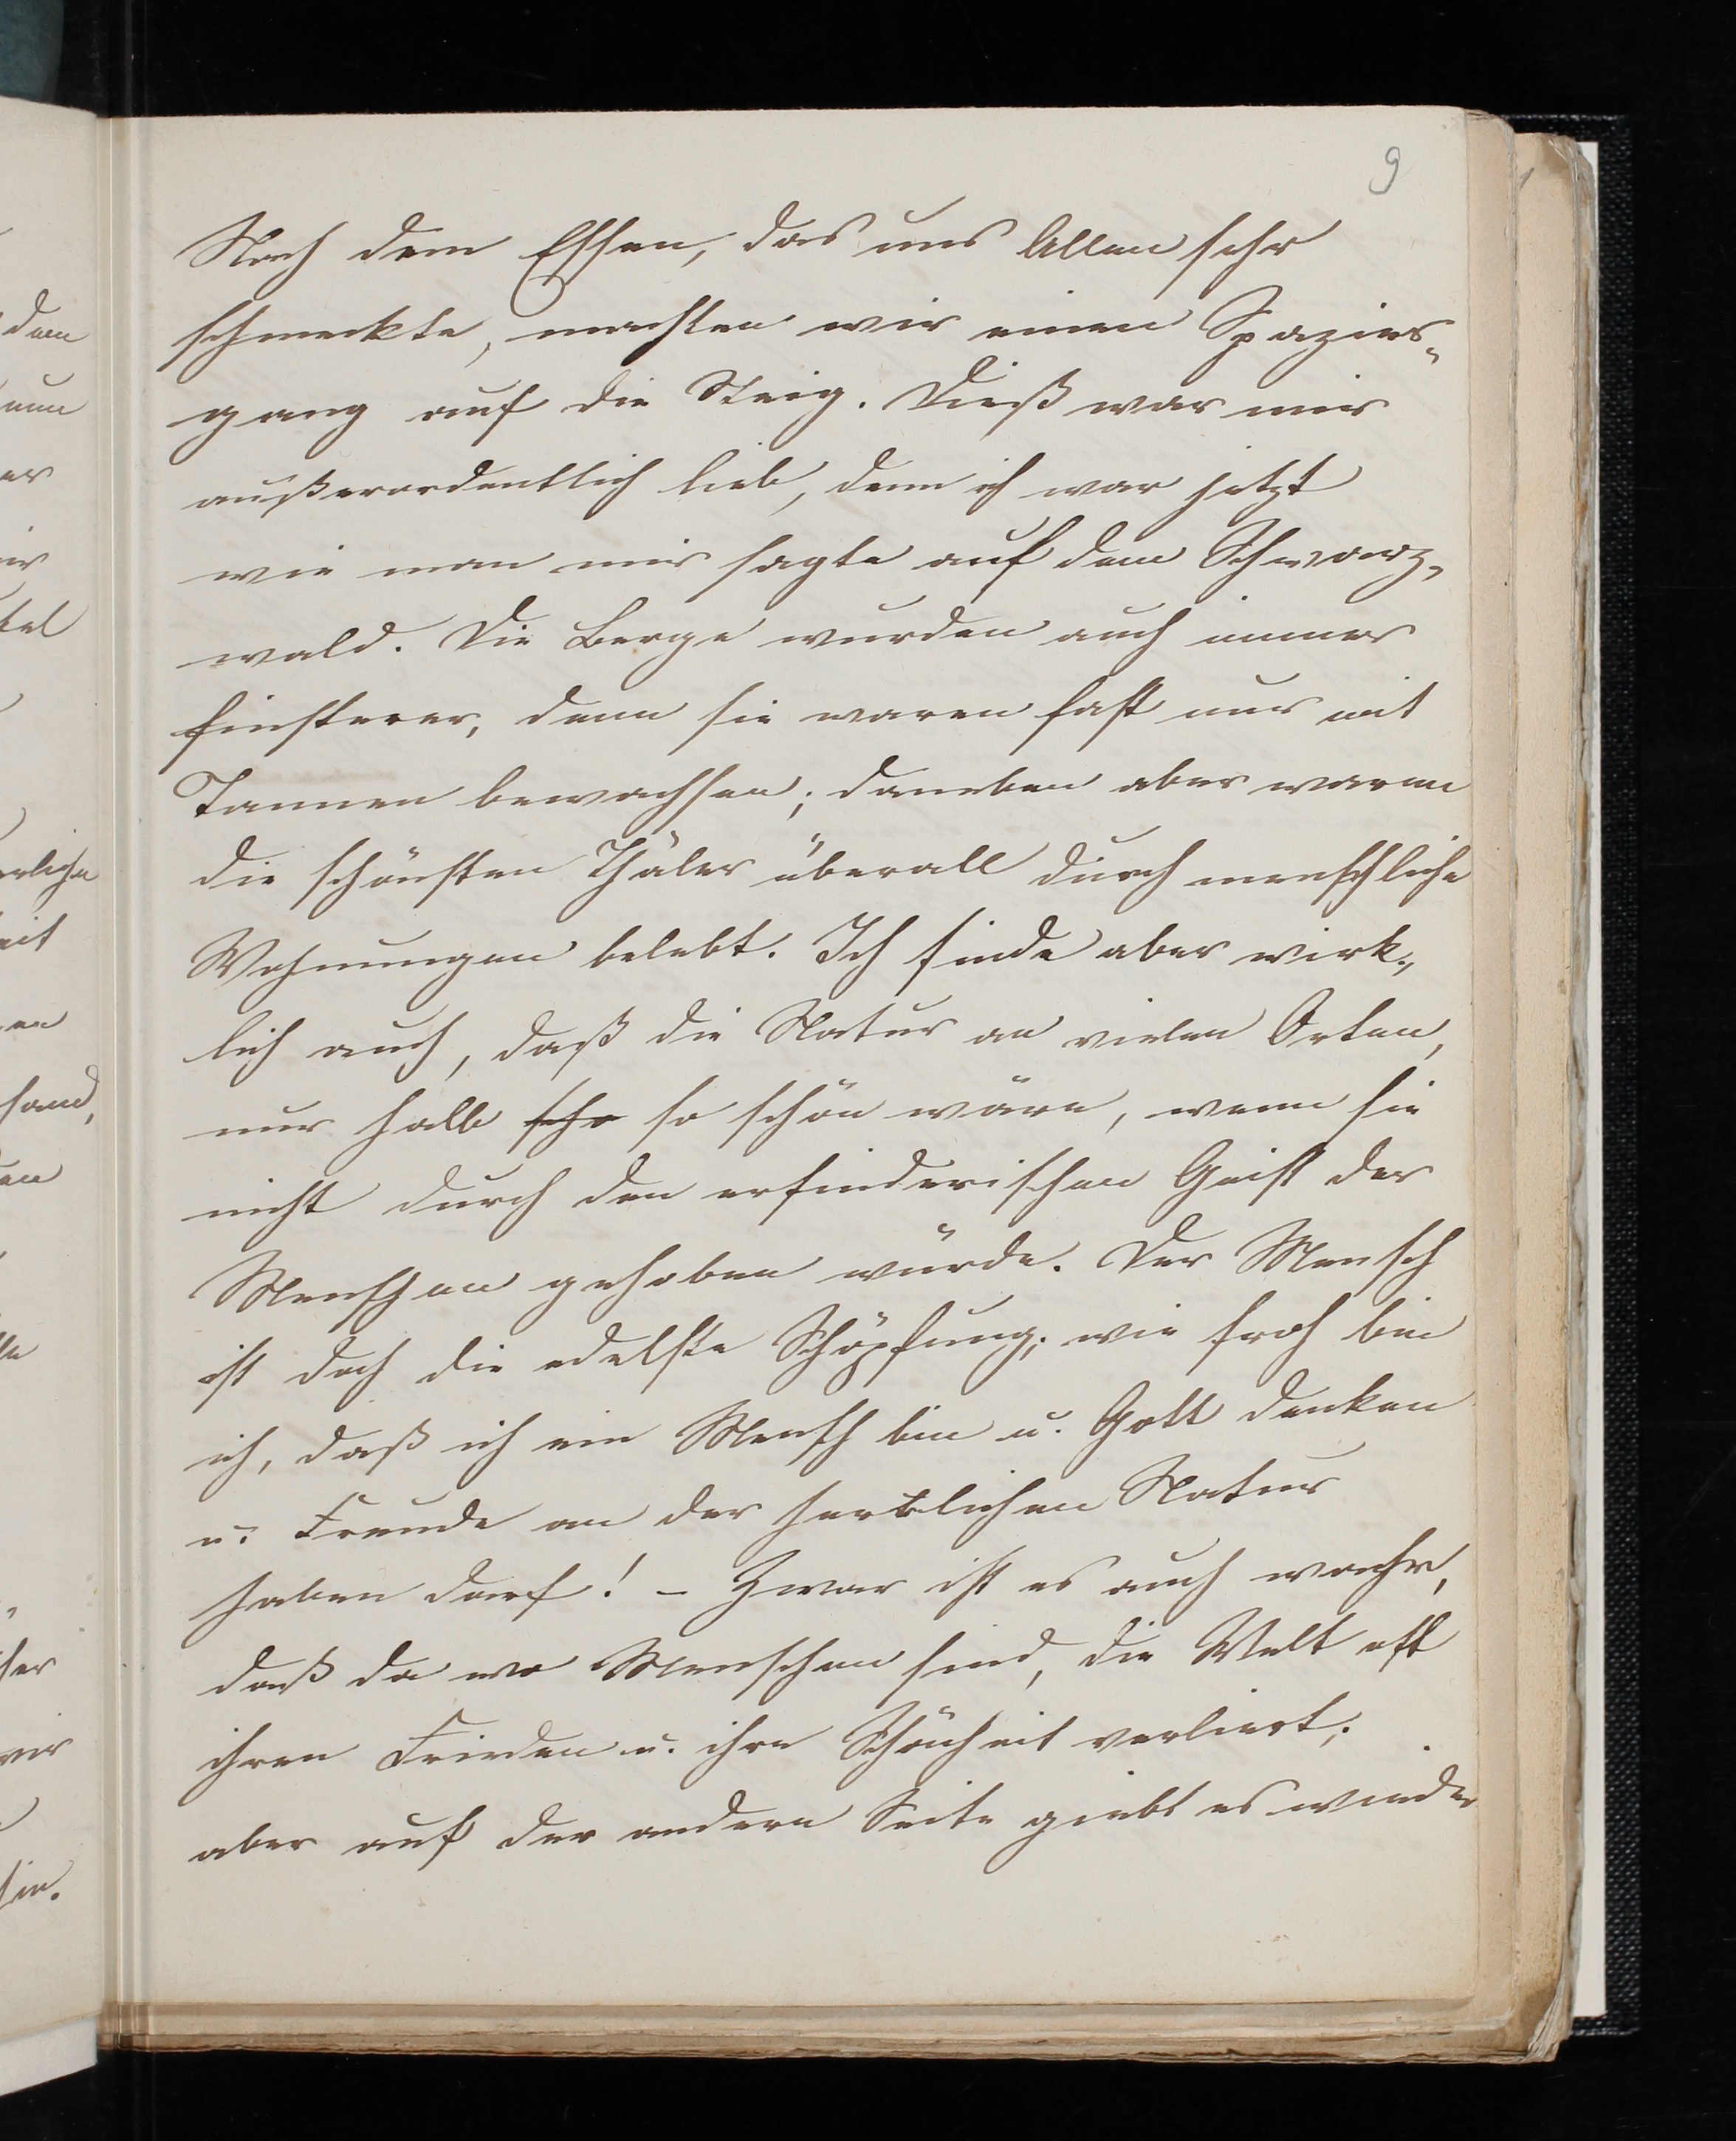 9
Nach dem Essen, das uns Allen sehr
schmeckte, machten wir einen Spazier-
gang auf die Steig. Dieß war mir
außerordentlich lieb, denn ich war jetzt
wie man mir sagte auf dem Schwarz-
wald. Die Berge wurden auch immer
finsterer, denn sie waren fast nur mit
Tannen bewachsen; daneben aber waren
die schönsten Thäler überall durch menschliche
Wohnungen belebt. Ich finde aber wirk-
lich auch, daß die Natur an vielen Orten,
nur halb scho so schön wäre, wenn sie
nicht durch den erfinderischen Geist der
Menschen gehoben würde. Der Mensch
ist doch die edelste Schöpfung; wie froh bin
ich, daß ich ein Mensch bin u. Gott denken
u. Freude an der herrlichen Natur
haben darf! – Zwar ist es auch wahr,
daß da wo Menschen sind, die Welt oft
ihren Frieden u. ihre Schönheit verliert;
aber auf der andern Seite giebt es wieder